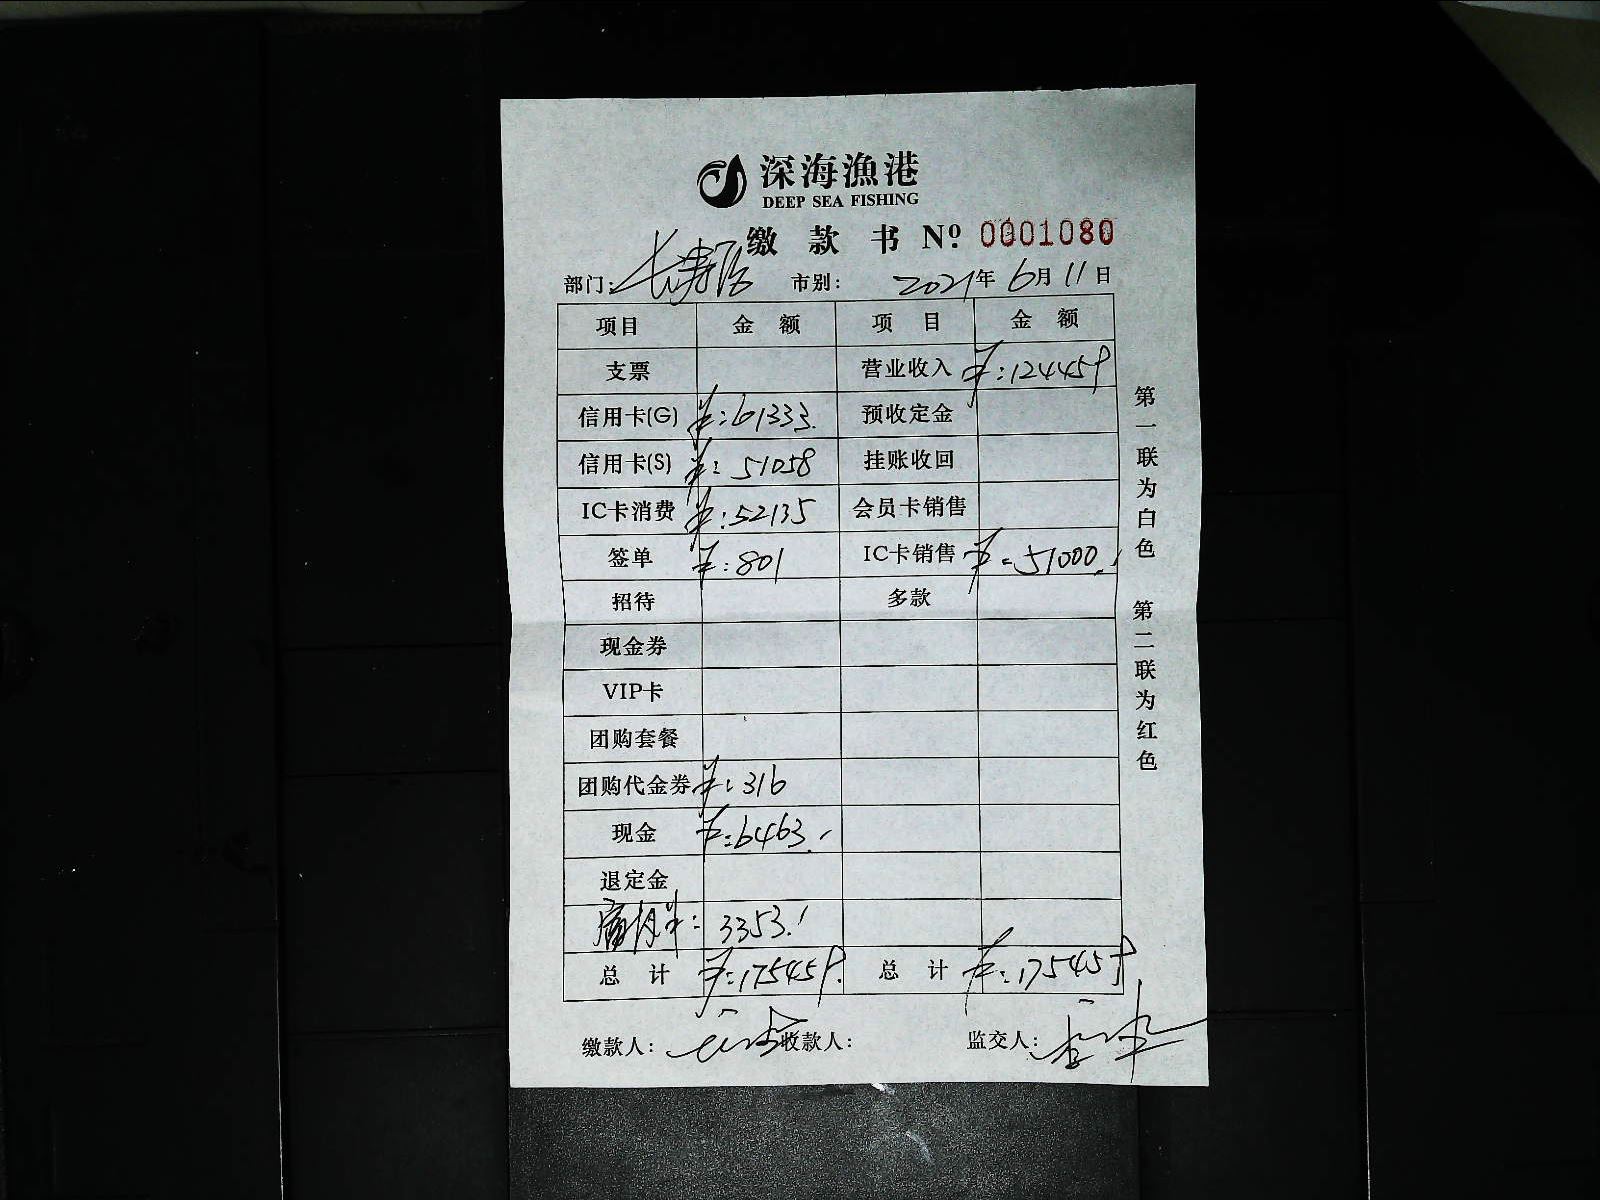 深海漁港
DEEP SEA FISHING
缴款书 Nº. 0001080
部门: 长寿路 市别: 2021年6月11日
项目 金额 项目 金额
支票 营业收入 ¥:124459
信用卡(G) ¥:61333. 预收定金
信用卡(S) ¥:51058 挂账收回
IC卡消费 ¥:52135 会员卡销售
签单 ¥:801 IC卡销售 ¥:51000.
招待 多款
现金券
VIP卡
团购套餐
团购代金券 ¥:316
现金 ¥:6463.
退定金
¥: 3353.
总计 ¥:175459. 总计 ¥:175459
缴款人: 收款人: 监交人:
第一联为白色 第二联为红色